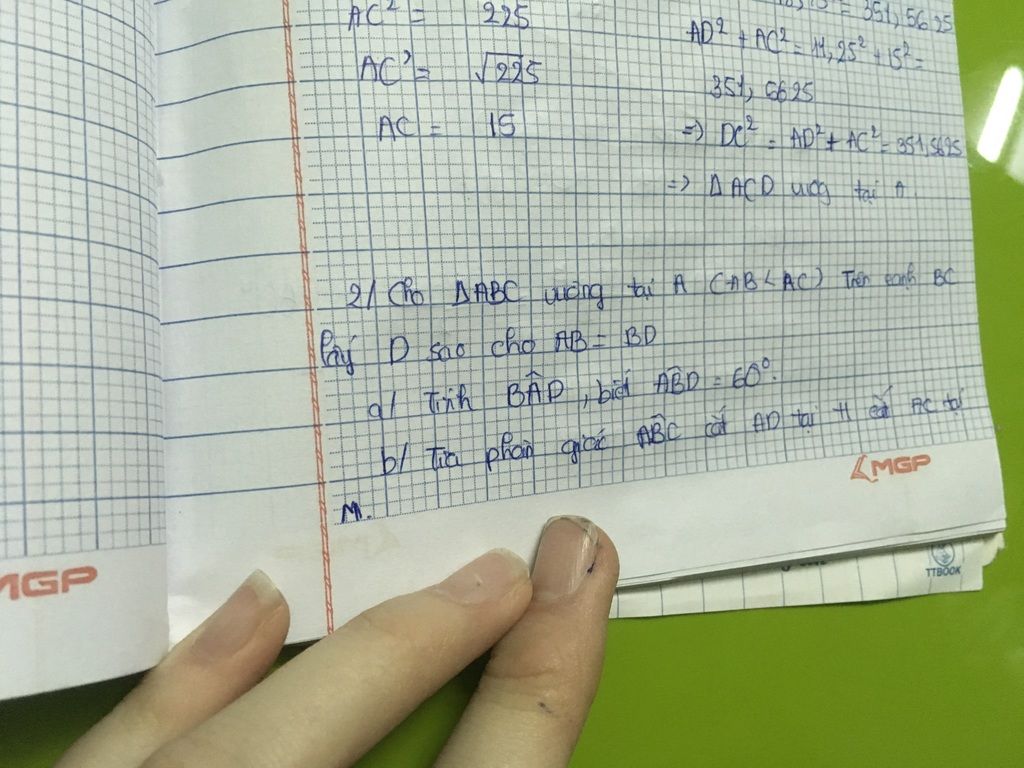 AC² = 225
= 351,5625
AC² = √225
AD² + AC² = 11,25² + 15² =
351,5625
AC = 15
=> DC² = AD² + AC² = 351,5625
=> ΔACD tại A.
2/ Cho ΔABC vuông tại A (AB < AC) Trên cạnh BC
lấy D sao cho AB = BD
a/ Tính BÂD, biết ABD = 60°.
b/ Tia phân giác ABC cắt AD tại H cắt AC tại
M.
MGP
MGP
TTBOOK